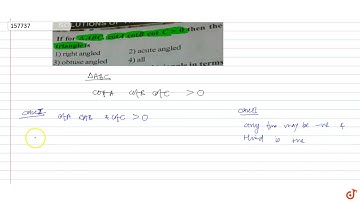 157737
If for △ABC, cotA cotB cot C > 0 then the
triangle is
1) right angled 2) acute angled
3) obuse angled 4) all
in terms
△ABC
cotA cotB cotC > 0
case I: cotA cotB & cotC > 0
case II
any two may be -ve &
third is +ve